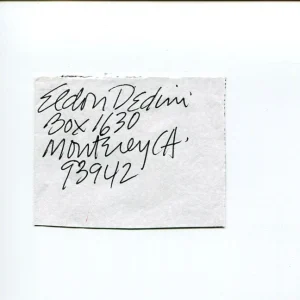 Eldon Dedini
Box 1630
Monterey CA.
93942